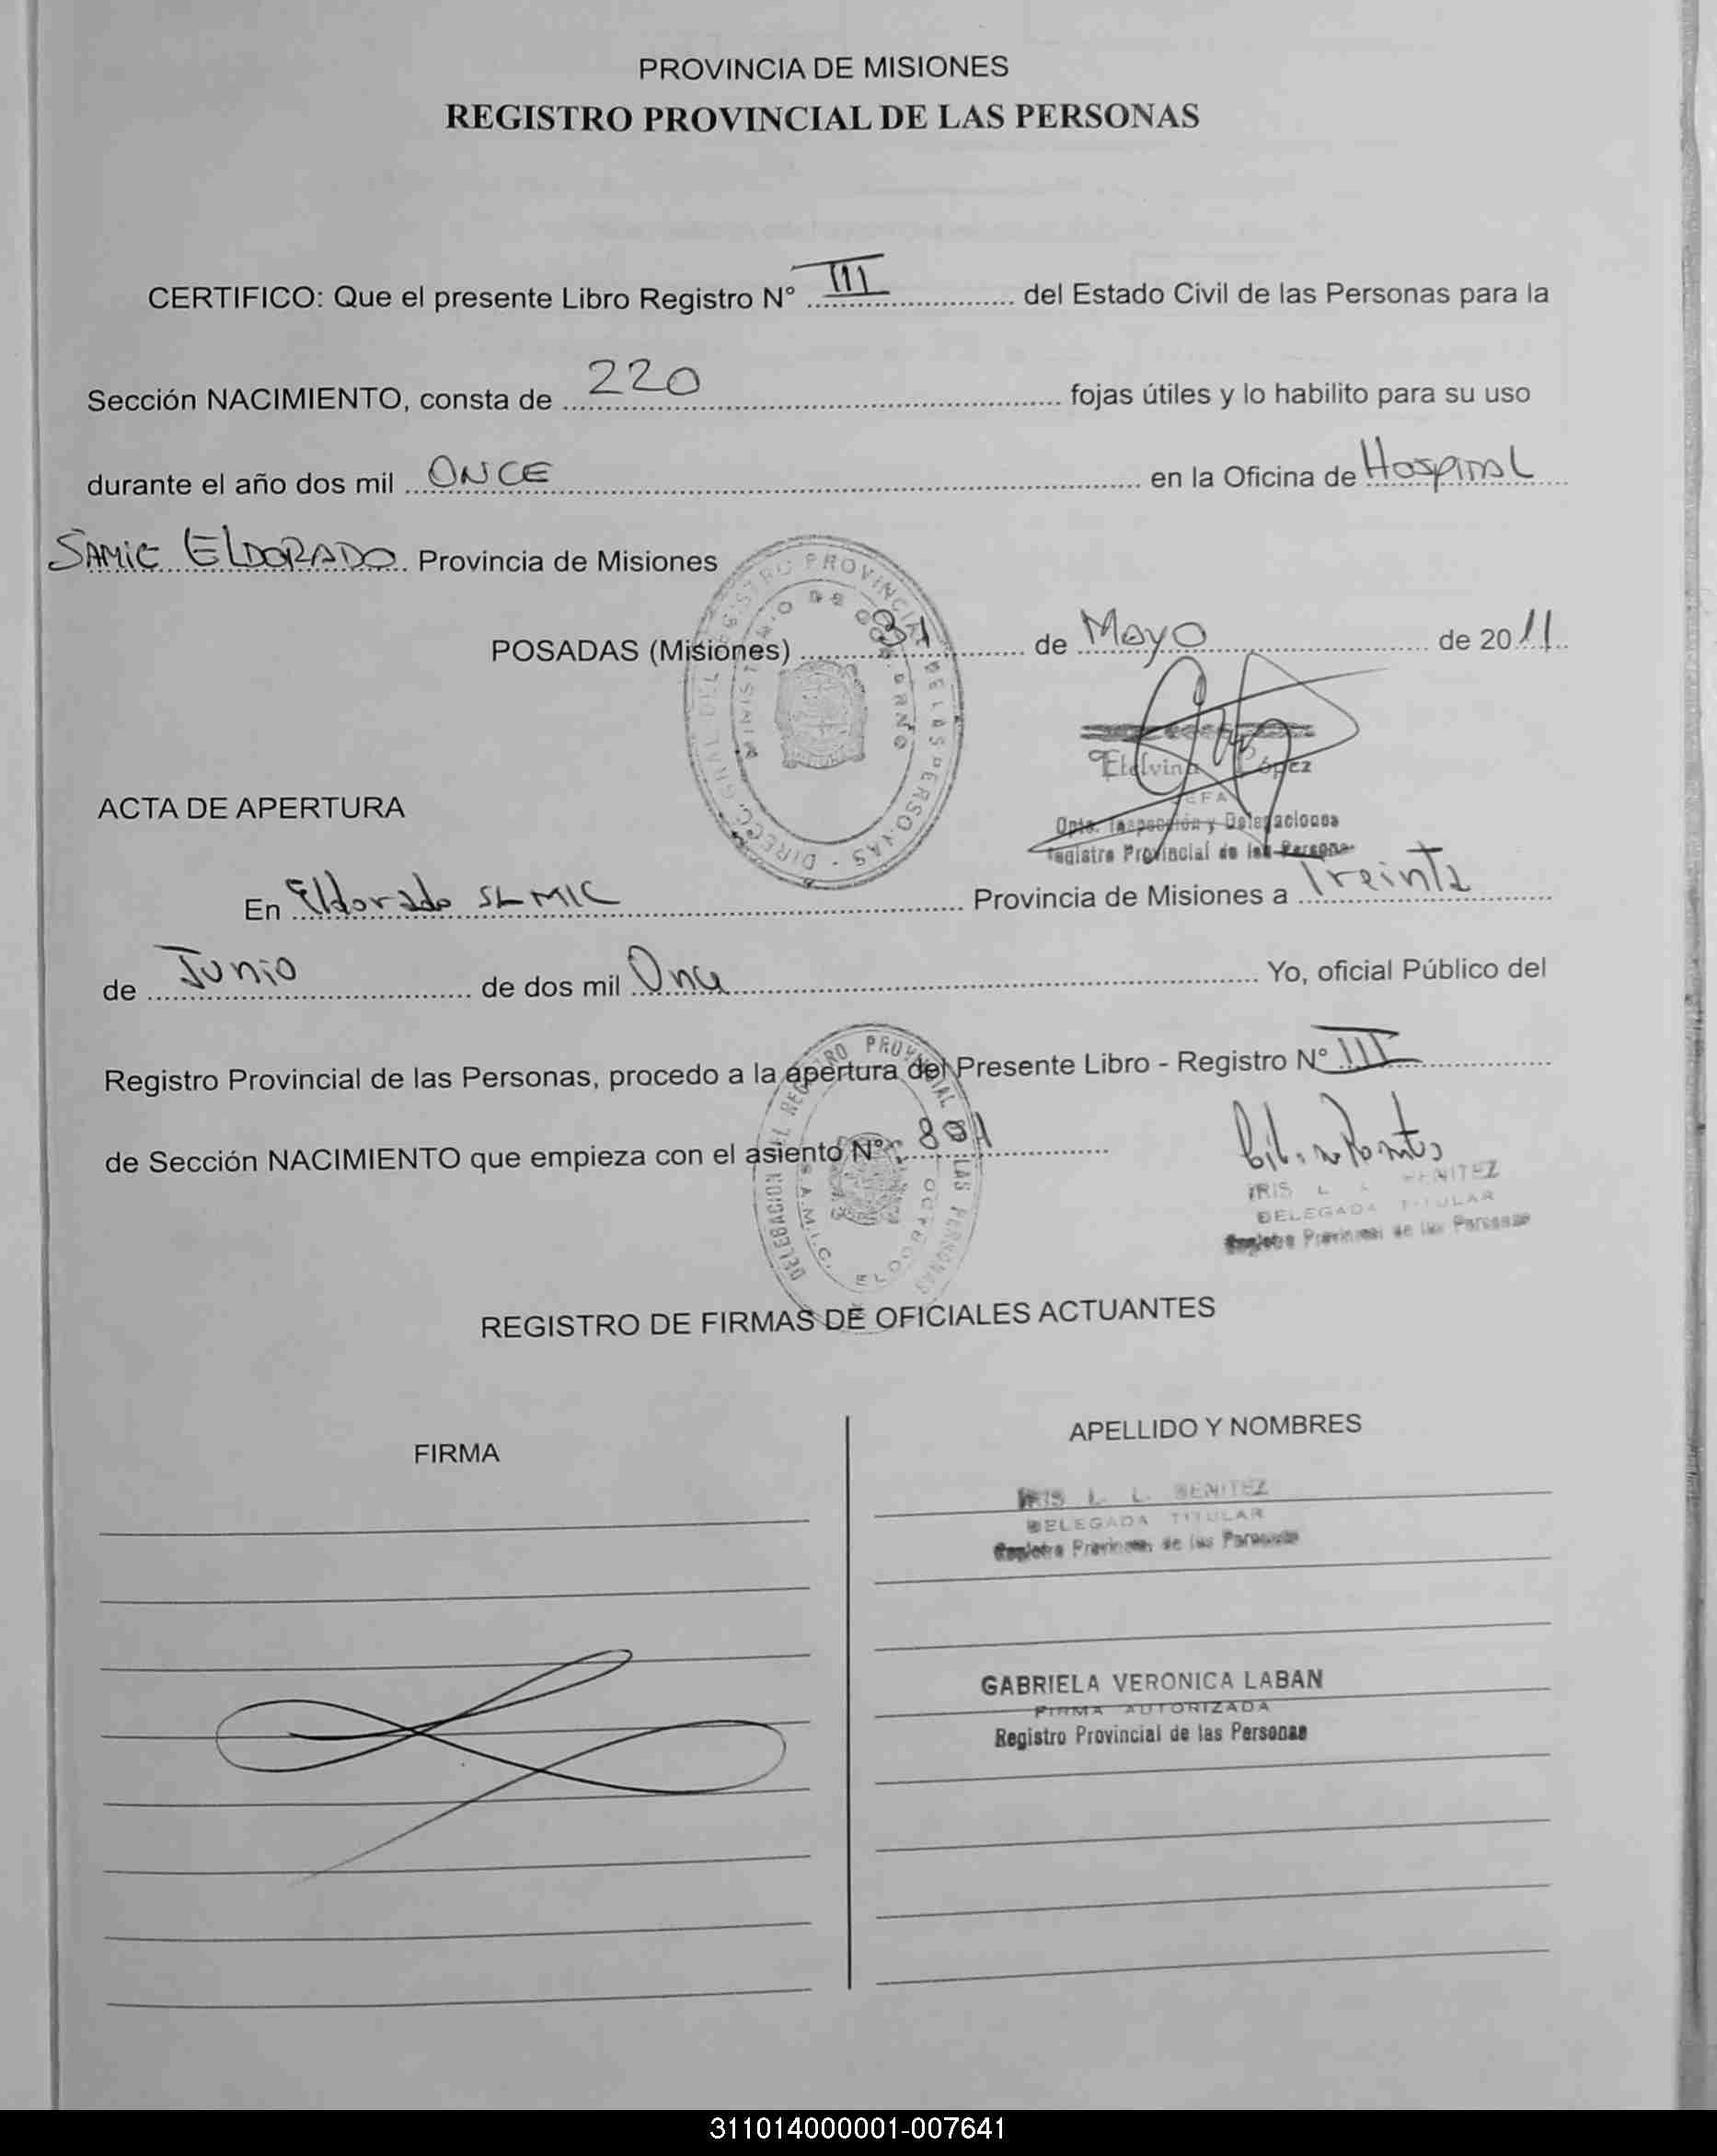 PROVINCIA DE MISIONES
REGISTRO PROVINCIAL DE LAS PERSONAS
CERTIFICO: Que el presente Libro Registro N° III del Estado Civil de las Personas para la
Sección NACIMIENTO, consta de 220 fojas útiles y lo habilito para su uso
durante el año dos mil ONCE en la Oficina de Hospital
SAMIC ELDORADO. Provincia de Misiones
POSADAS (Misiones) 31 de Mayo de 2011
Etelvina López
JEFA
Dpto. Inspección y Delegaciones
Registro Provincial de las Personas
ACTA DE APERTURA
En Eldorado SAMIC Provincia de Misiones a Treinta
de Junio de dos mil Once Yo, oficial Público del
Registro Provincial de las Personas, procedo a la apertura del Presente Libro - Registro N° III
de Sección NACIMIENTO que empieza con el asiento N° 801
IRIS L. L. BENITEZ
DELEGADA TITULAR
Registro Provincial de las Personas
REGISTRO DE FIRMAS DE OFICIALES ACTUANTES
FIRMA
APELLIDO Y NOMBRES
IRIS L. L. BENITEZ
DELEGADA TITULAR
Registro Provincial de las Personas
GABRIELA VERONICA LABAN
FIRMA AUTORIZADA
Registro Provincial de las Personas
311014000001-007641